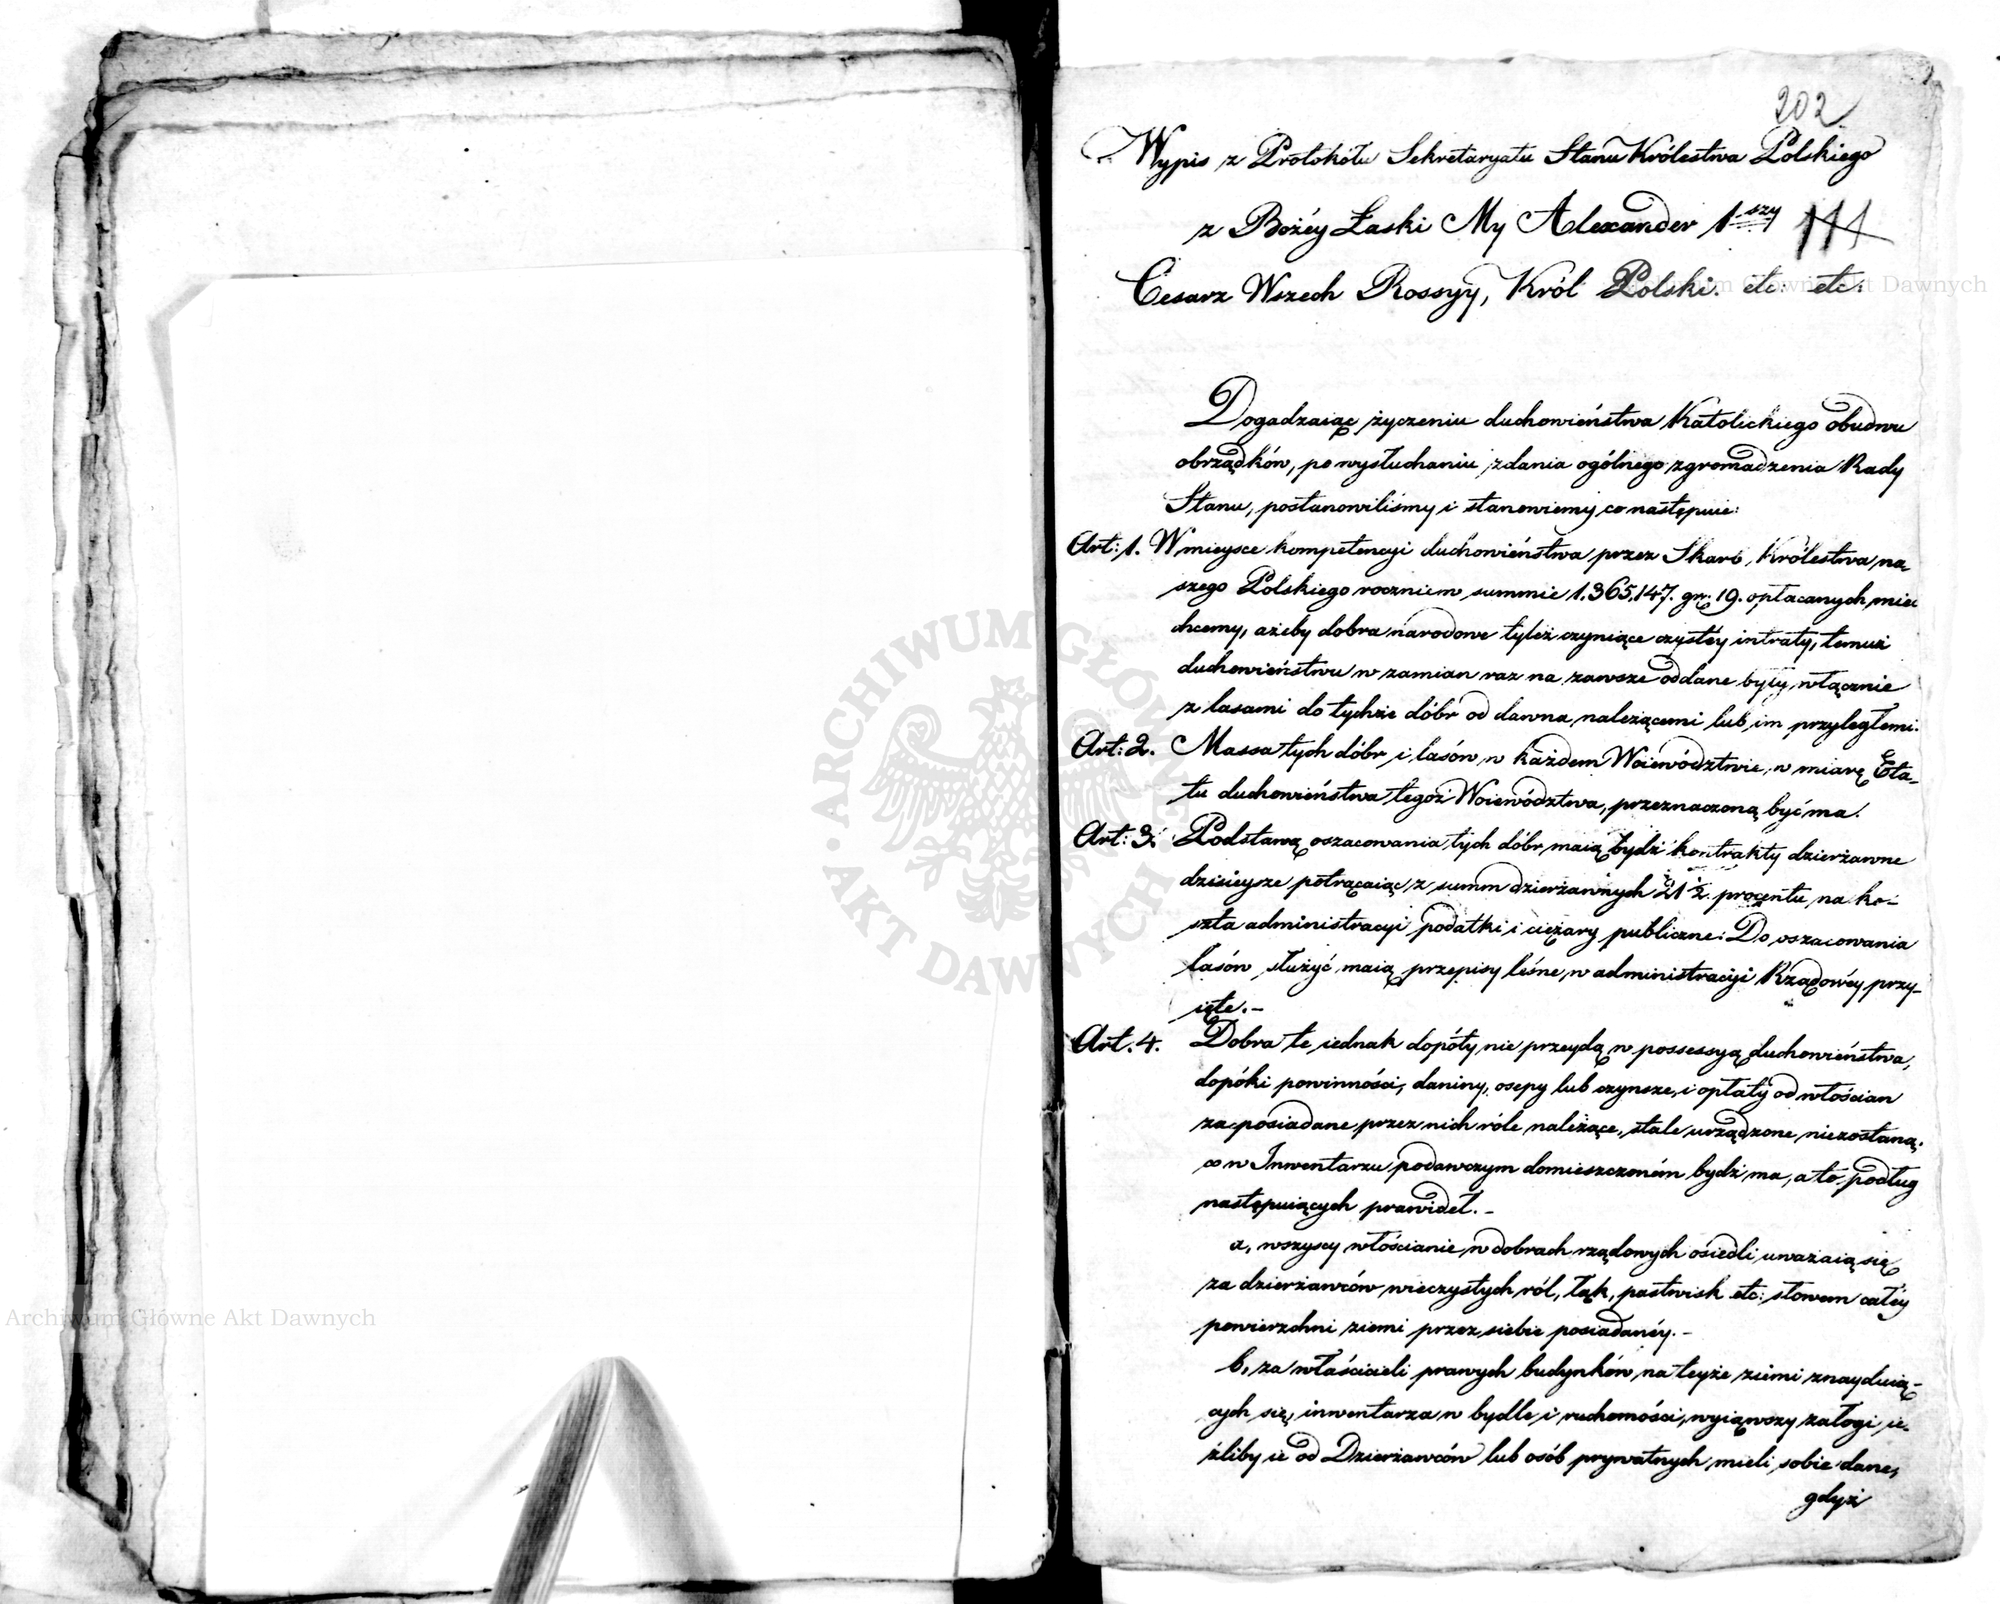 202
Wypis z Protokółu Sekretaryatu Stanu Królestwa Polskiego
z Bożéy Łaski My Alexander 1szy 111
Cesarz Wszech Rossyy, Król Polski. etc: etc:
Dogadzaiąc życzeniu duchowieństwa Katolickiego obudwu
obrządków, po wysłuchaniu zdania ogólnego zgromadzenia Rady
Stanu, postanowiliśmy i stanowiemy co następuie:
Art: 1. W mieysce kompetencyi duchowieństwa przez Skarb Królestwa na-
szego Polskiego roczniem summie 1.365,147. gr. 19. opłacanych, mieć
chcemy, ażeby dobra narodowe tyleż czyniące czystéy intraty, temuż
duchowieństwu w zamian raz na zawsze oddane były, włącznie
z lasami do tychże dóbr od dawna należącemi lub im przyległemi.
Art: 2. Massa tych dóbr i lasów w każdem Woiewództwie, w miarę Eta-
tu duchowieństwa tegoż Woiewództwa, przeznaczoną być ma.
Art: 3. Podstawą oszacowania tych dóbr maią bydź kontrakty dzierżawne
dzisieysze potrącaiąc z summ dzierżawnych 21 1/2 procentu na ko-
szta administracyi podatki i ciężary publiczne: Do oszacowania
lasów służyć maią przepisy leśne, w administracyi Rządowéy przy-
ięte.-
Art. 4. Dobra te iednak dopóty nie przeydą w possessyą duchowieństwa,
dopóki powinności, daniny, osepy lub czynsze, i opłaty od włościan
za posiadane przez nich róle należące, stale urządzone niezostaną,
co w Inwentarzu podawczym domieszczoném bydź ma, a to podług
następuiących prawideł.-
a, wszyscy włościanie w dobrach rządowych osiedli uważaią się
za dzierżawców wieczystych ról, łąk, pastwisk etc: słowem całéy
powierzchni ziemi przez siebie posiadanéy.-
b, za właścicieli prawych budynków na teyże ziemi znayduią-
cych się, inwentarza w bydle i ruchomości, wyiąwszy załogi ie-
żliby ie od Dzierżawców lub osób prywatnych mieli sobie dane,
gdyż
Archiwum Główne Akt Dawnych
ARCHIWUM GŁÓWNE AKT DAWNYCH
Archiwum Główne Akt Dawnych